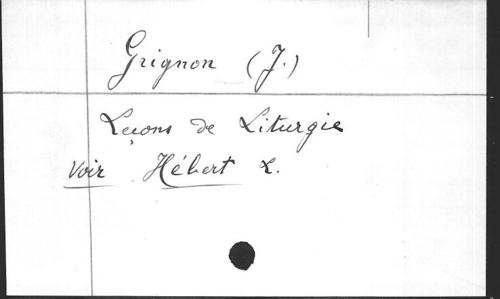 Grignon (J.)
Leçons de Liturgie
Voir Hébert L.